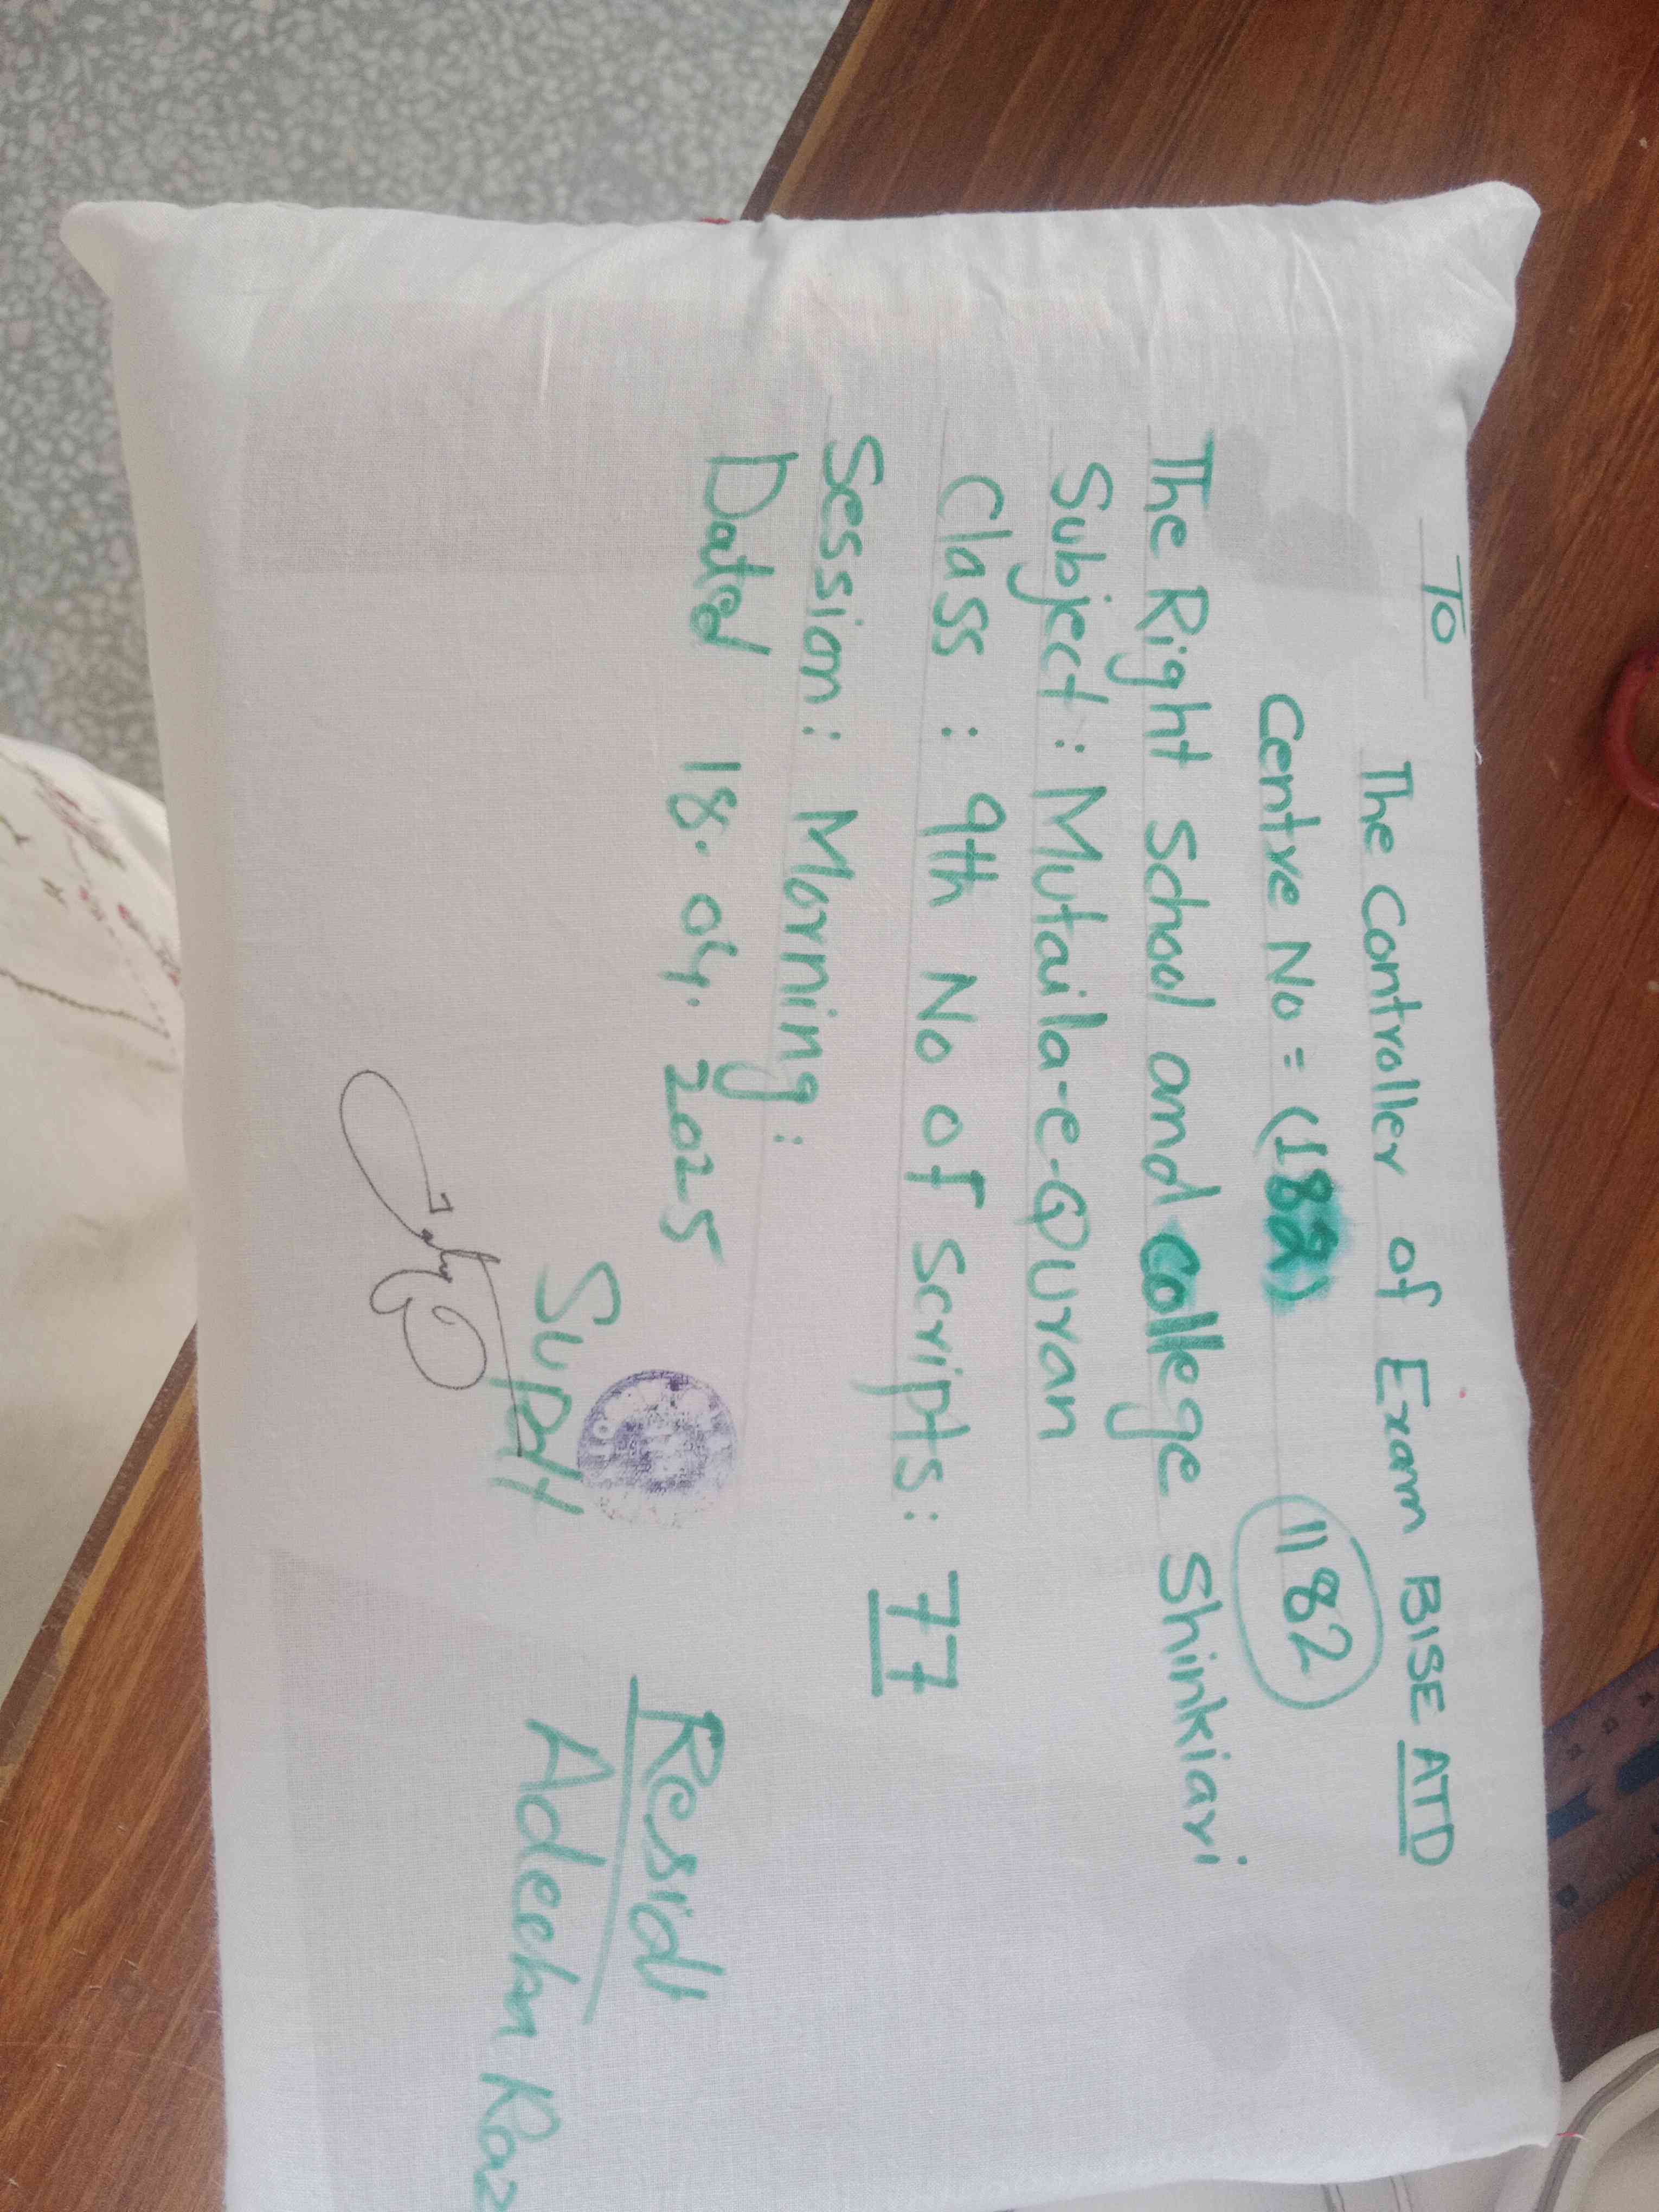 To
The Controller of Exam BISE ATD
Centre No = (182) 1182
The Right School and College Shinkiari
Subject : Mutaila-e-Quran
Class : 9th No of Scripts: 77
Session: Morning:
Dated 18.04.2025
Supdt
Resid
Adeem Raz